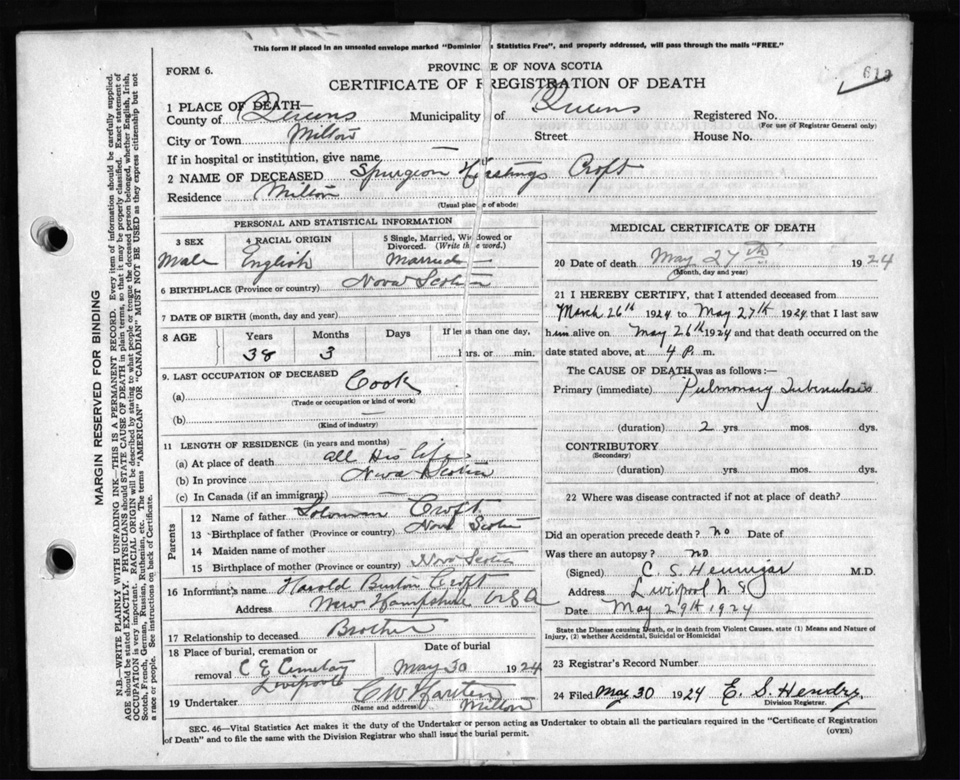 This form if placed in an unsealed envelope marked "Dominion Statistics Free", and properly addressed, will pass through the mails "FREE."
FORM 6.
PROVINCE OF NOVA SCOTIA
CERTIFICATE OF REGISTRATION OF DEATH
1 PLACE OF DEATH—
County of Queens Municipality of Queens Registered No.
(For use of Registrar General only)
City or Town Milton Street House No.
If in hospital or institution, give name —
2 NAME OF DECEASED Spurgeon Hastings Croft
Residence Milton
(Usual place of abode)
PERSONAL AND STATISTICAL INFORMATION
3 SEX 4 RACIAL ORIGIN 5 Single, Married, Widowed or Divorced. (Write the word.)
Male English Married —
6 BIRTHPLACE (Province or country) Nova Scotia
7 DATE OF BIRTH (month, day and year)
8 AGE Years Months Days If less than one day,
38 3 hrs. or min.
9. LAST OCCUPATION OF DECEASED
(a) Cook
(Trade or occupation or kind of work)
(b) —
(Kind of industry)
11 LENGTH OF RESIDENCE (in years and months)
(a) At place of death all His life
(b) In province Nova Scotia
(c) In Canada (if an immigrant) —
Parents
12 Name of father Soloman Croft
13 Birthplace of father (Province or country) Nova Scotia
14 Maiden name of mother
15 Birthplace of mother (Province or country) Nova Scotia
16 Informant's name Harold Burton Croft
Address New Hampshire USA
17 Relationship to deceased Brother
18 Place of burial, cremation or removal Date of burial
C E Cemetery May 30 1924
Liverpool
19 Undertaker C W Harten
(Name and address) Milton
MEDICAL CERTIFICATE OF DEATH
20 Date of death May 27th 1924
(Month, day and year)
21 I HEREBY CERTIFY, that I attended deceased from
March 26th 1924 to May 27th 1924 that I last saw
him alive on May 26th 1924 and that death occurred on the
date stated above, at 4 P. m.
The CAUSE OF DEATH was as follows:—
Primary (immediate) Pulmonary Tuberculosis
(duration) 2 yrs. mos. dys.
CONTRIBUTORY
(Secondary)
(duration) yrs. mos. dys.
22 Where was disease contracted if not at place of death?
Did an operation precede death? no Date of
Was there an autopsy? no.
(Signed) C. S. Hennigar M.D.
Address Liverpool N.S
Date May 29th 1924
State the Disease causing Death, or in death from Violent Causes, state (1) Means and Nature of Injury, (2) whether Accidental, Suicidal or Homicidal
23 Registrar's Record Number
24 Filed May 30 1924 E. S. Hendry
Division Registrar.
SEC. 46—Vital Statistics Act makes it the duty of the Undertaker or person acting as Undertaker to obtain all the particulars required in the "Certificate of Registration
of Death" and to file the same with the Division Registrar who shall issue the burial permit.
(OVER)
MARGIN RESERVED FOR BINDING
N.B.—WRITE PLAINLY WITH UNFADING INK—THIS IS A PERMANENT RECORD. Every item of information should be carefully supplied.
AGE should be stated EXACTLY. PHYSICIANS should STATE CAUSE OF DEATH in plain terms, so that it may be properly classified. Exact statement of
OCCUPATION is very important. RACIAL ORIGIN will be described by stating to what people or tongue the deceased person belonged, whether English, Irish,
Scotch, French, German, Russian, Ruthenian, etc. The terms "AMERICAN" OR "CANADIAN" MUST NOT BE USED as they express citizenship but not
a race or people. See instructions on back of Certificate.